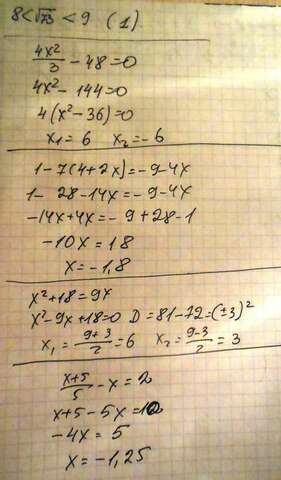 8 < √73 < 9 (1)
4x²/3 - 48 = 0
4x² - 144 = 0
4(x² - 36) = 0
x₁ = 6 x₂ = -6
1 - 7(4 + 2x) = -9 - 4x
1 - 28 - 14x = -9 - 4x
-14x + 4x = -9 + 28 - 1
-10x = 18
x = -1,8
x² + 18 = 9x
x² - 9x + 18 = 0 D = 81 - 72 = (±3)²
x₁ = (9+3)/2 = 6 x₂ = (9-3)/2 = 3
(x+5)/5 - x = 2
x + 5 - 5x = 10
-4x = 5
x = -1,25